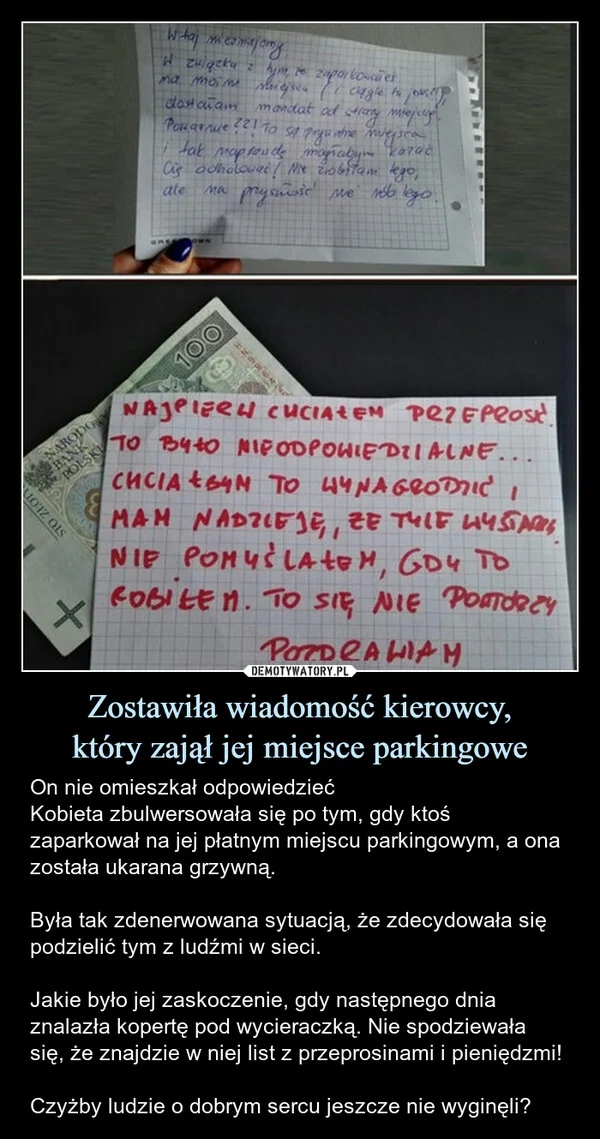 Witaj nieznajomy
W związku z tym, że zaparkowałeś
na moim miejscu (i ciągle tu jesteś),
dostałam mandat od straży miejskiej.
Poważnie??! To są prywatne miejsca
i tak naprawdę mogłabym kazać
Cię odholować! Nie zrobiłam tego,
ale na przyszłość nie rób tego.
100
NARODOWY
BANK
POLSKI
STO ZŁOTYCH
NAJPIERW CHCIAŁEM PRZEPROSIĆ.
TO BYŁO NIEODPOWIEDZIALNE...
CHCIAŁBYM TO WYNAGRODZIĆ I
MAM NADZIEJĘ, ŻE TYLE WYSTARCZY
NIE POMYŚLAŁEM, GDY TO
ROBIŁEM. TO SIĘ NIE POWTÓRZY
POZDRAWIAM
DEMOTYWATORY.PL
Zostawiła wiadomość kierowcy,
który zajął jej miejsce parkingowe
On nie omieszkał odpowiedzieć
Kobieta zbulwersowała się po tym, gdy ktoś
zaparkował na jej płatnym miejscu parkingowym, a ona
została ukarana grzywną.
Była tak zdenerwowana sytuacją, że zdecydowała się
podzielić tym z ludźmi w sieci.
Jakie było jej zaskoczenie, gdy następnego dnia
znalazła kopertę pod wycieraczką. Nie spodziewała
się, że znajdzie w niej list z przeprosinami i pieniędzmi!
Czyżby ludzie o dobrym sercu jeszcze nie wyginęli?